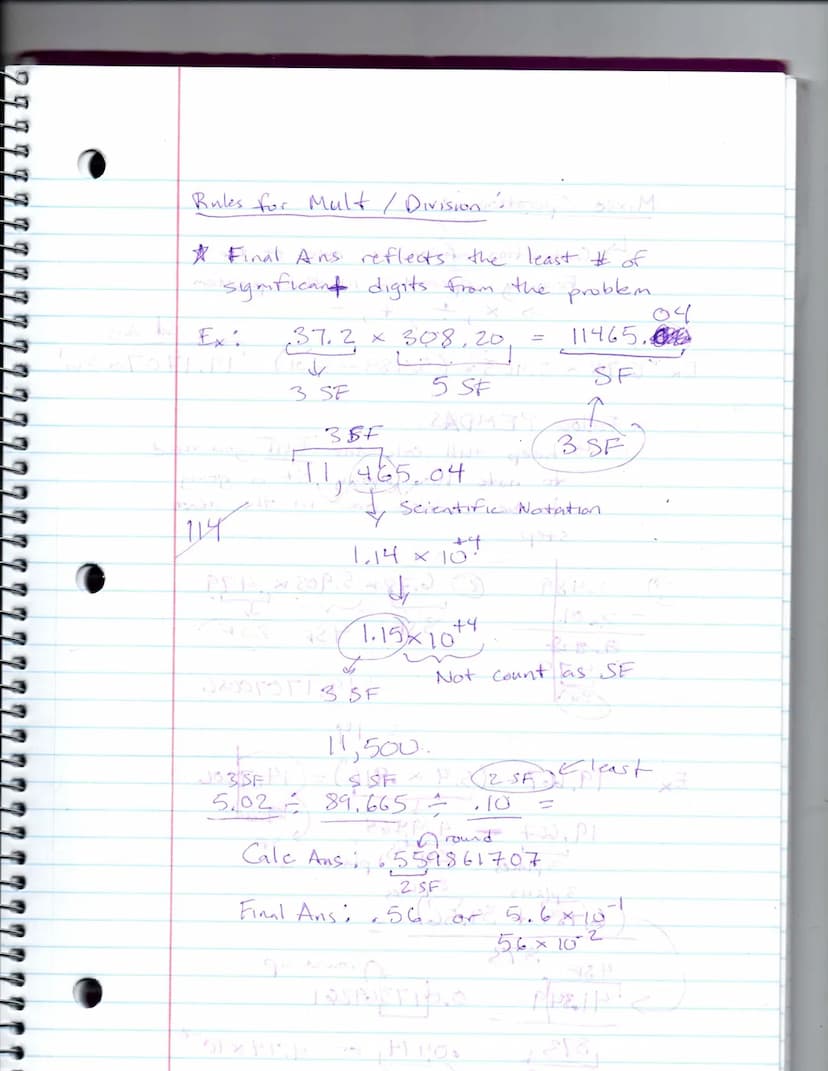 Rules for Mult / Division :
★ Final Ans reflects the least # of
significant digits from the problem
Ex: 37.2 × 308.20 = 11465.04
3 SF 5 SF SF
3 SF
3 SF
11,465.04
Scientific Notation
114
1.14 × 10⁺⁴
1.15 × 10⁺⁴
Not count as SF
3 SF
11,500.
3 SF 5 SF 2 SF ← least
5.02 ÷ 89.665 ÷ .10 =
round
Calc Ans : .559861707
2 SF
Final Ans : .56 or 5.6 × 10⁻¹
56 × 10⁻²